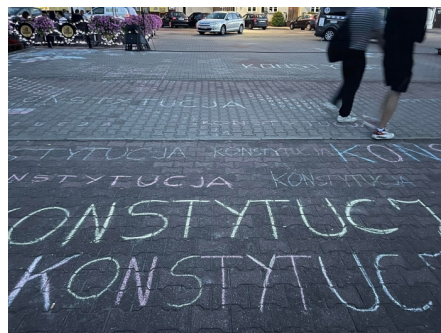 KONSTY
TUCJA
STYTUCJA KONSTYTUCJA KONS
NSTYTUCJA KONSTYTUCJA
KONSTYTUC
KONSTYTUC